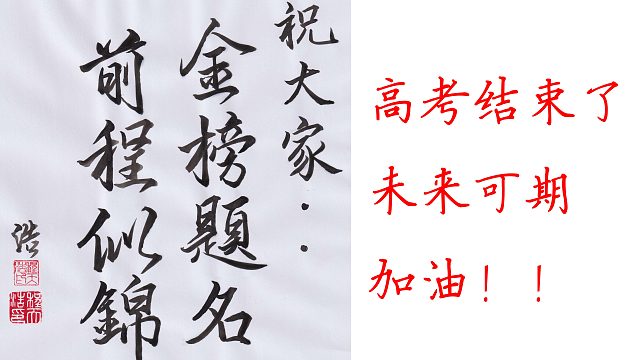 祝大家：
金榜題名
前程似錦
浩
高考结束了
未来可期
加油！！